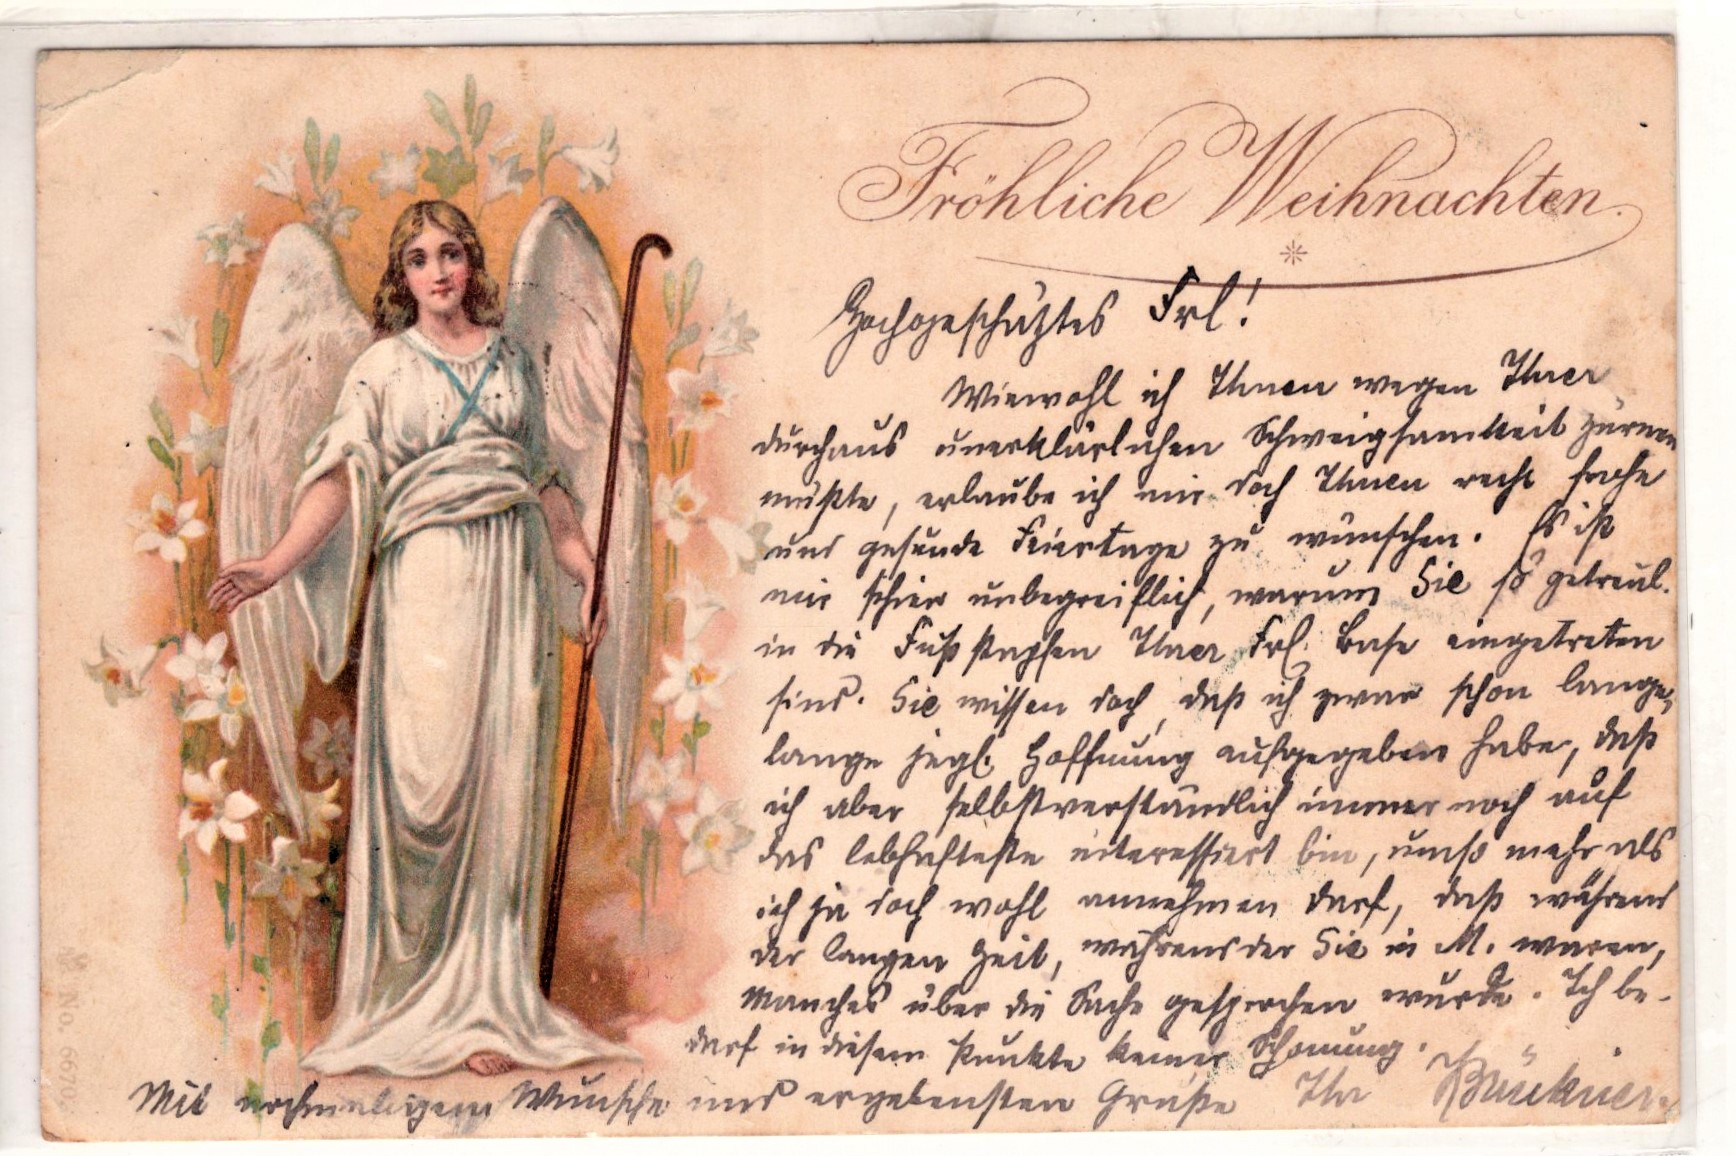 Fröhliche Weihnachten.
Hochgeschätztes Frl!
Wiewohl ich Ihnen wegen Ihrer
durchaus unerklärlichen Schweigsamkeit zürnen
müßte, erlaube ich mir doch Ihnen recht frohe
und gesunde Feiertage zu wünschen. Es ist
mir schier unbegreiflich, warum Sie so getreul.
in die Fußstapfen Ihrer Frl. Base eingetreten
sind. Sie wissen doch, daß ich zwar schon lange,
lange jegl. Hoffnung aufgegeben habe, daß
ich aber selbstverständlich immer noch auf
das lebhafteste interessiert bin, umso mehr als
ich ja doch wohl annehmen darf, daß während
der langen Zeit, während der Sie in M. waren,
manches über die Sache gesprochen wurde. Ich be-
darf in diesem Punkte keiner Schonung.
Mit nochmaligem Wunsche und ergebensten Grüße Ihr Brückner.
No. 6670